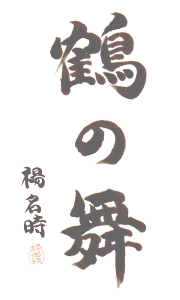 鶴の舞
楊名時